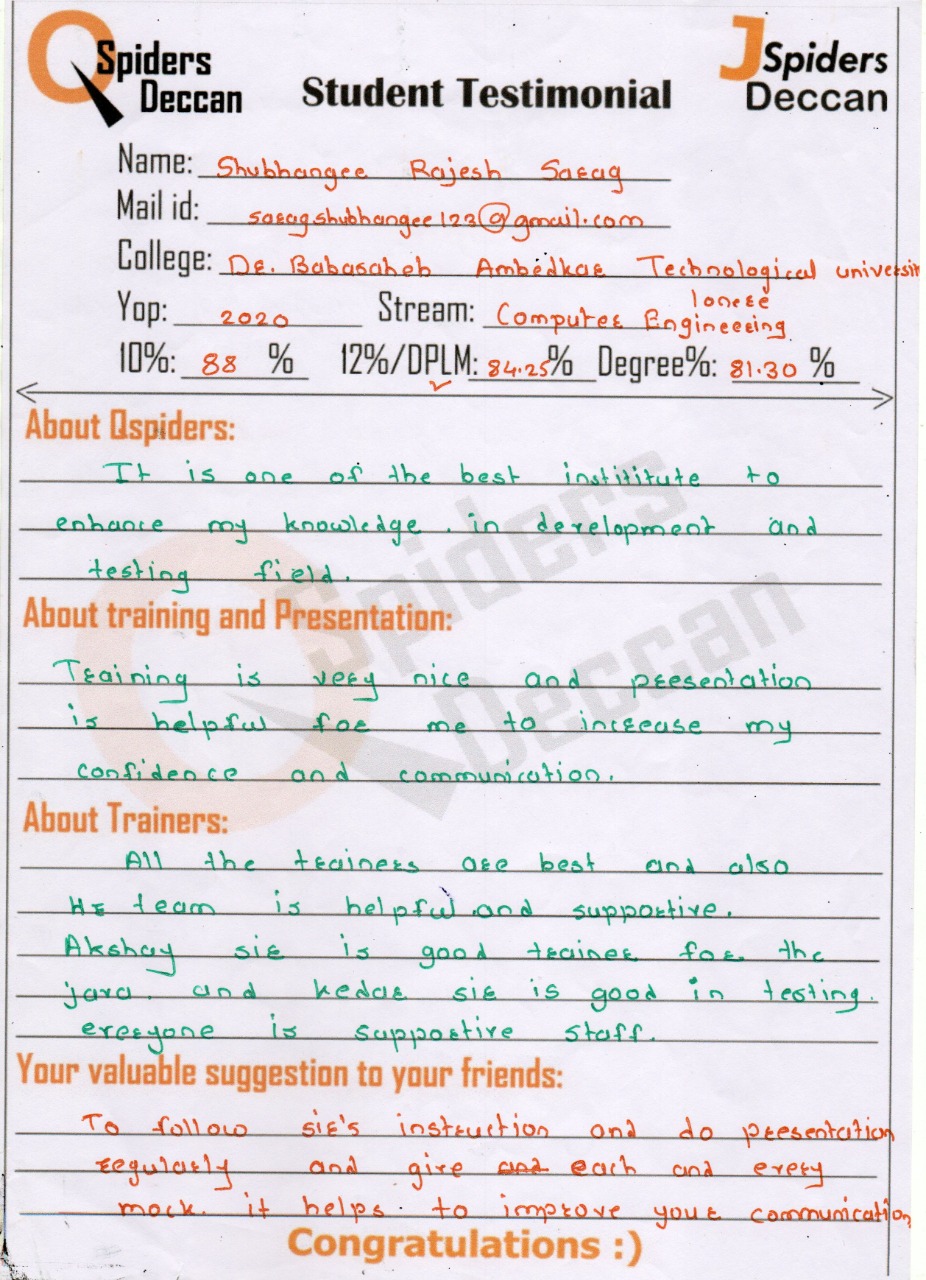 QSpiders Deccan
JSpiders Deccan
Student Testimonial
Name: Shubhangee Rajesh Sarag
Mail id: saragshubhangee123@gmail.com
College: Dr. Babasaheb Ambedkar Technological universit
lonere
Yop: 2020 Stream: Computer Engineering
10%: 88 % 12%/DPLM: 84.25% Degree%: 81.30 %
About Qspiders:
It is one of the best instititute to
enhance my knowledge. in development and
testing field.
About training and Presentation:
Training is very nice and presentation
is helpful for me to increase my
confidence and communication.
About Trainers:
All the trainers are best and also
HR team is helpful and supportive.
Akshay sir is good trainer for the
java. and kedar sir is good in testing.
everyone is supportive staff.
Your valuable suggestion to your friends:
To follow sir's instruction and do presentation
regularly and give and each and every
mock. it helps to improve your communication
Congratulations :)
Spiders
Deccan